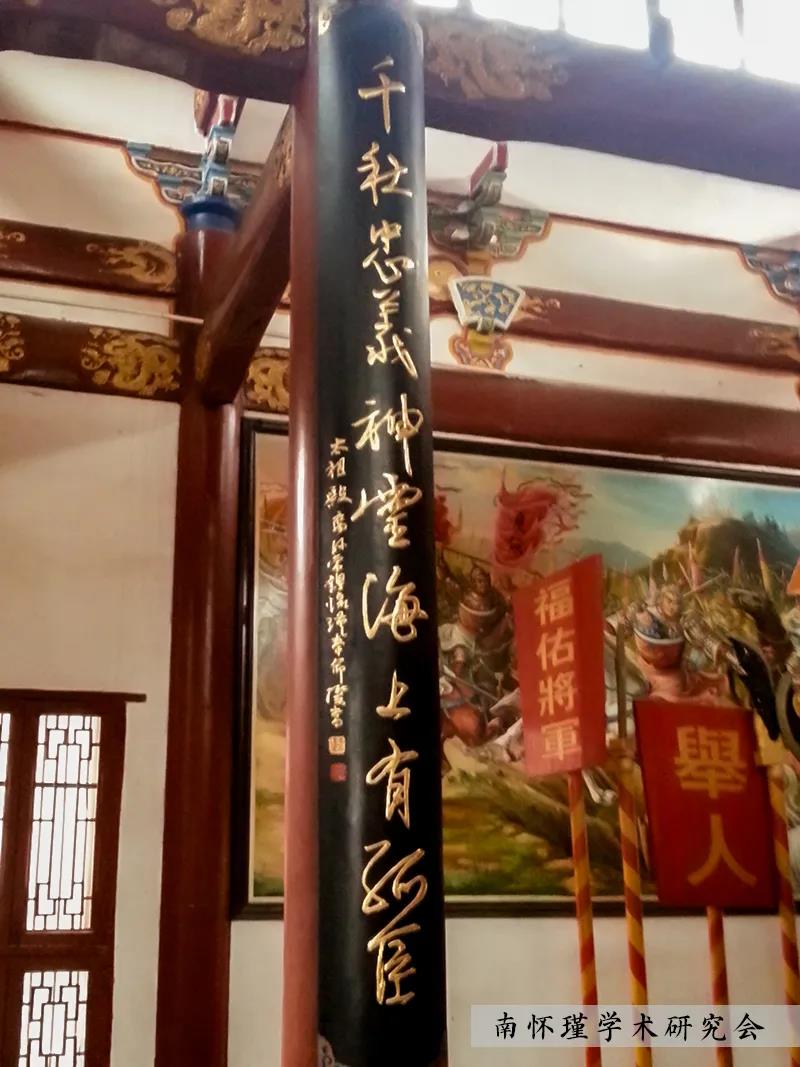 千秋忠義神靈海上有孤臣
太祖殿
福佑將軍
舉人
南怀瑾学术研究会